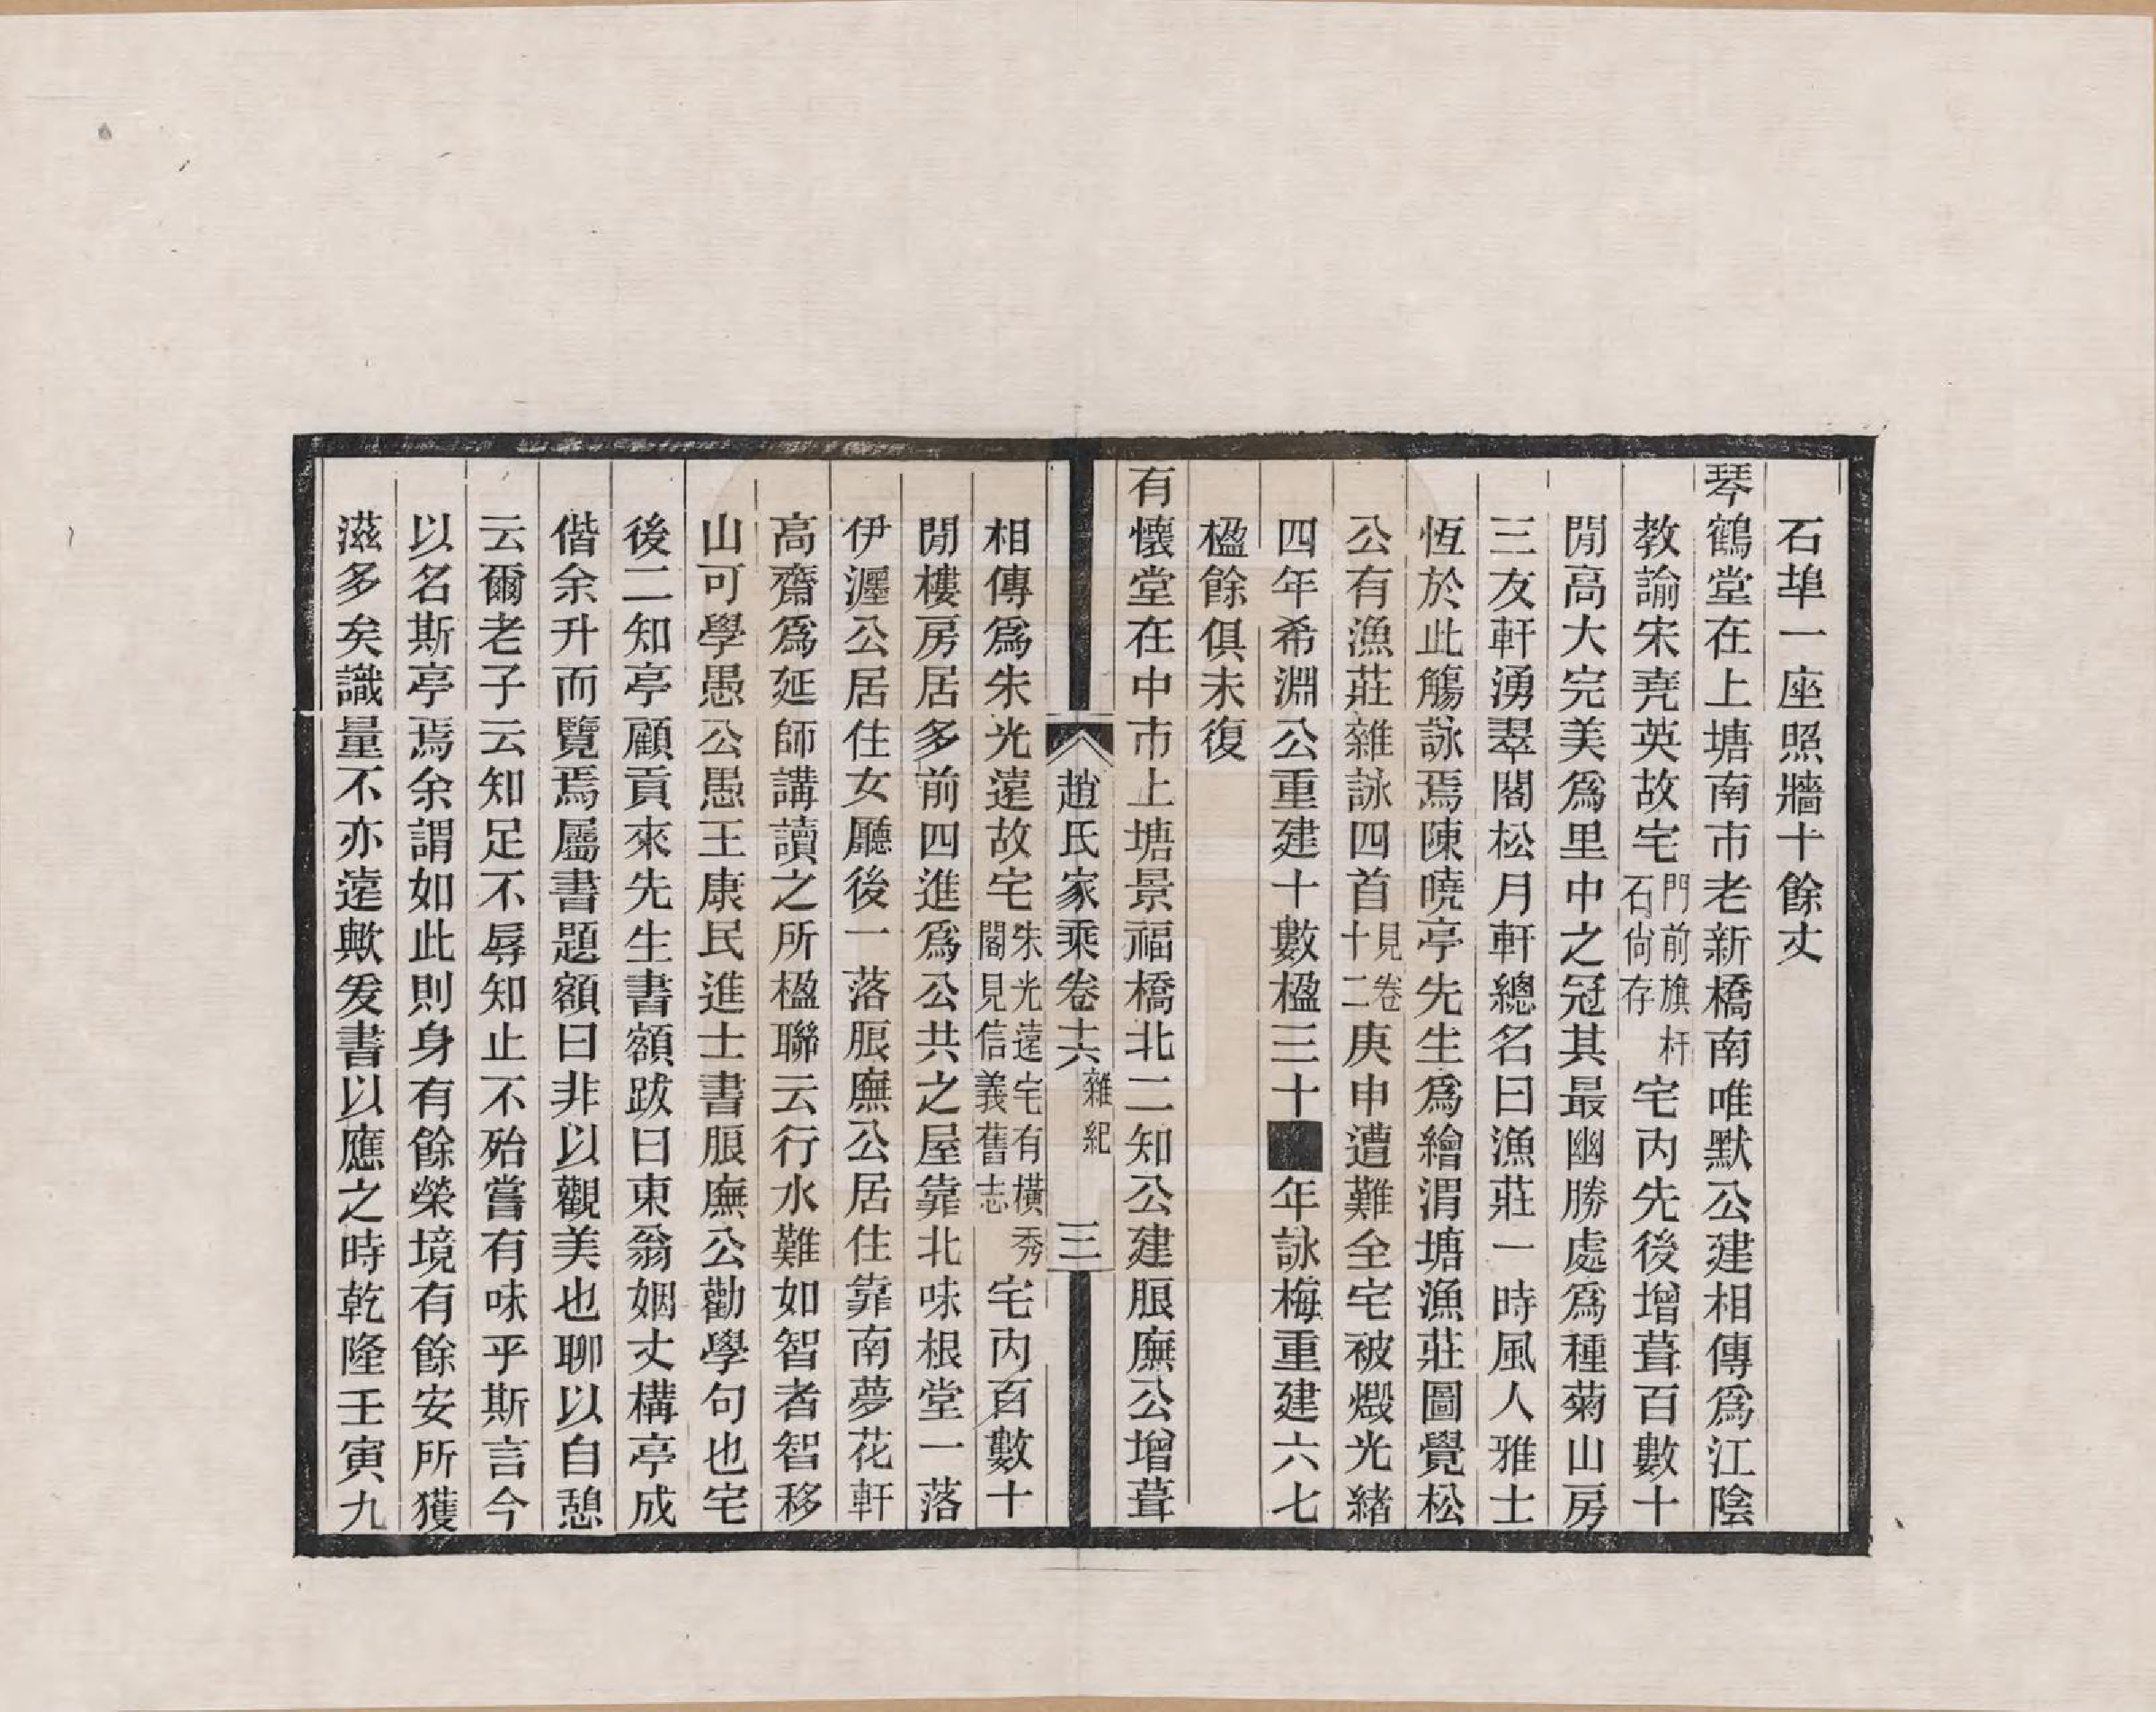 石埠一座照牆十餘丈
琴鶴堂在上塘南市老新橋南唯默公建相傳爲江陰
教諭宋堯英故宅門前旗杆石尙存宅內先後增葺百數十
閒高大完美爲里中之冠其最幽勝處爲種菊山房
三友軒湧翠閣松月軒總名曰漁莊一時風人雅士
恆於此觴詠焉陳曉亭先生爲繪渭塘漁莊圖覺松
公有漁莊雜詠四首見卷十二庚申遭難全宅被燬光緒
四年希淵公重建十數楹三十■年詠梅重建六七
楹餘俱未復
有懷堂在中市上塘景福橋北二知公建脤廡公增葺
趙氏家乘卷十六 雜紀 三
相傳爲朱光遠故宅朱光遠宅有橫秀閣見信義舊志宅內百數十
閒樓房居多前四進爲公共之屋靠北味根堂一落
伊濹公居住女廳後一落脤廡公居住靠南夢花軒
高齋爲延師講讀之所楹聯云行水難如智者智移
山可學愚公愚王康民進士書脤廡公勸學句也宅
後二知亭顧貢來先生書額跋曰東翁姻丈構亭成
偕余升而覽焉屬書題額曰非以觀美也聊以自憩
云爾老子云知足不辱知止不殆嘗有味乎斯言今
以名斯亭焉余謂如此則身有餘榮境有餘安所獲
滋多矣識量不亦遠歟爰書以應之時乾隆壬寅九